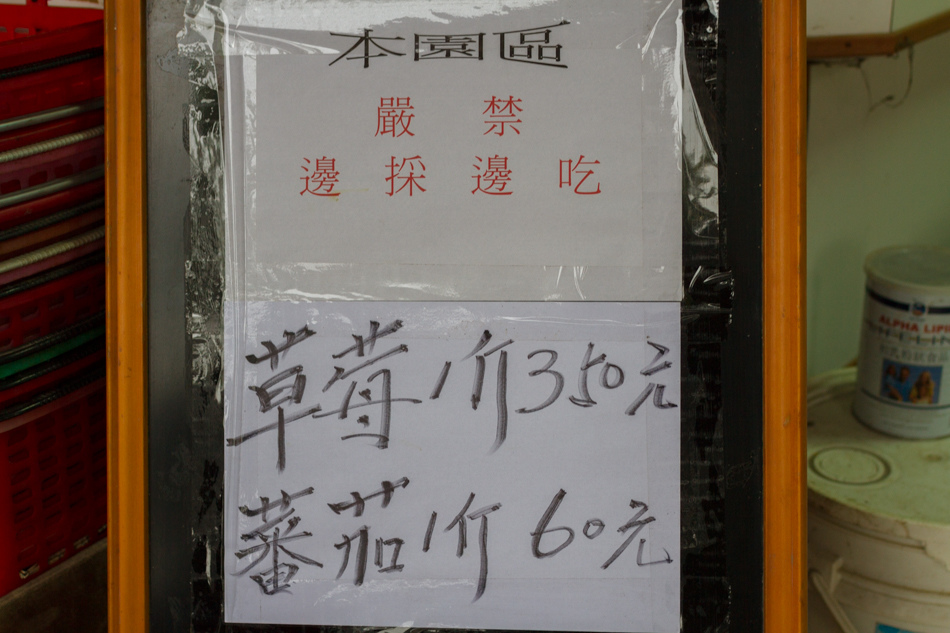 本園區
嚴禁
邊採邊吃
草莓1斤350元
蕃茄1斤60元
ALPHA LIP